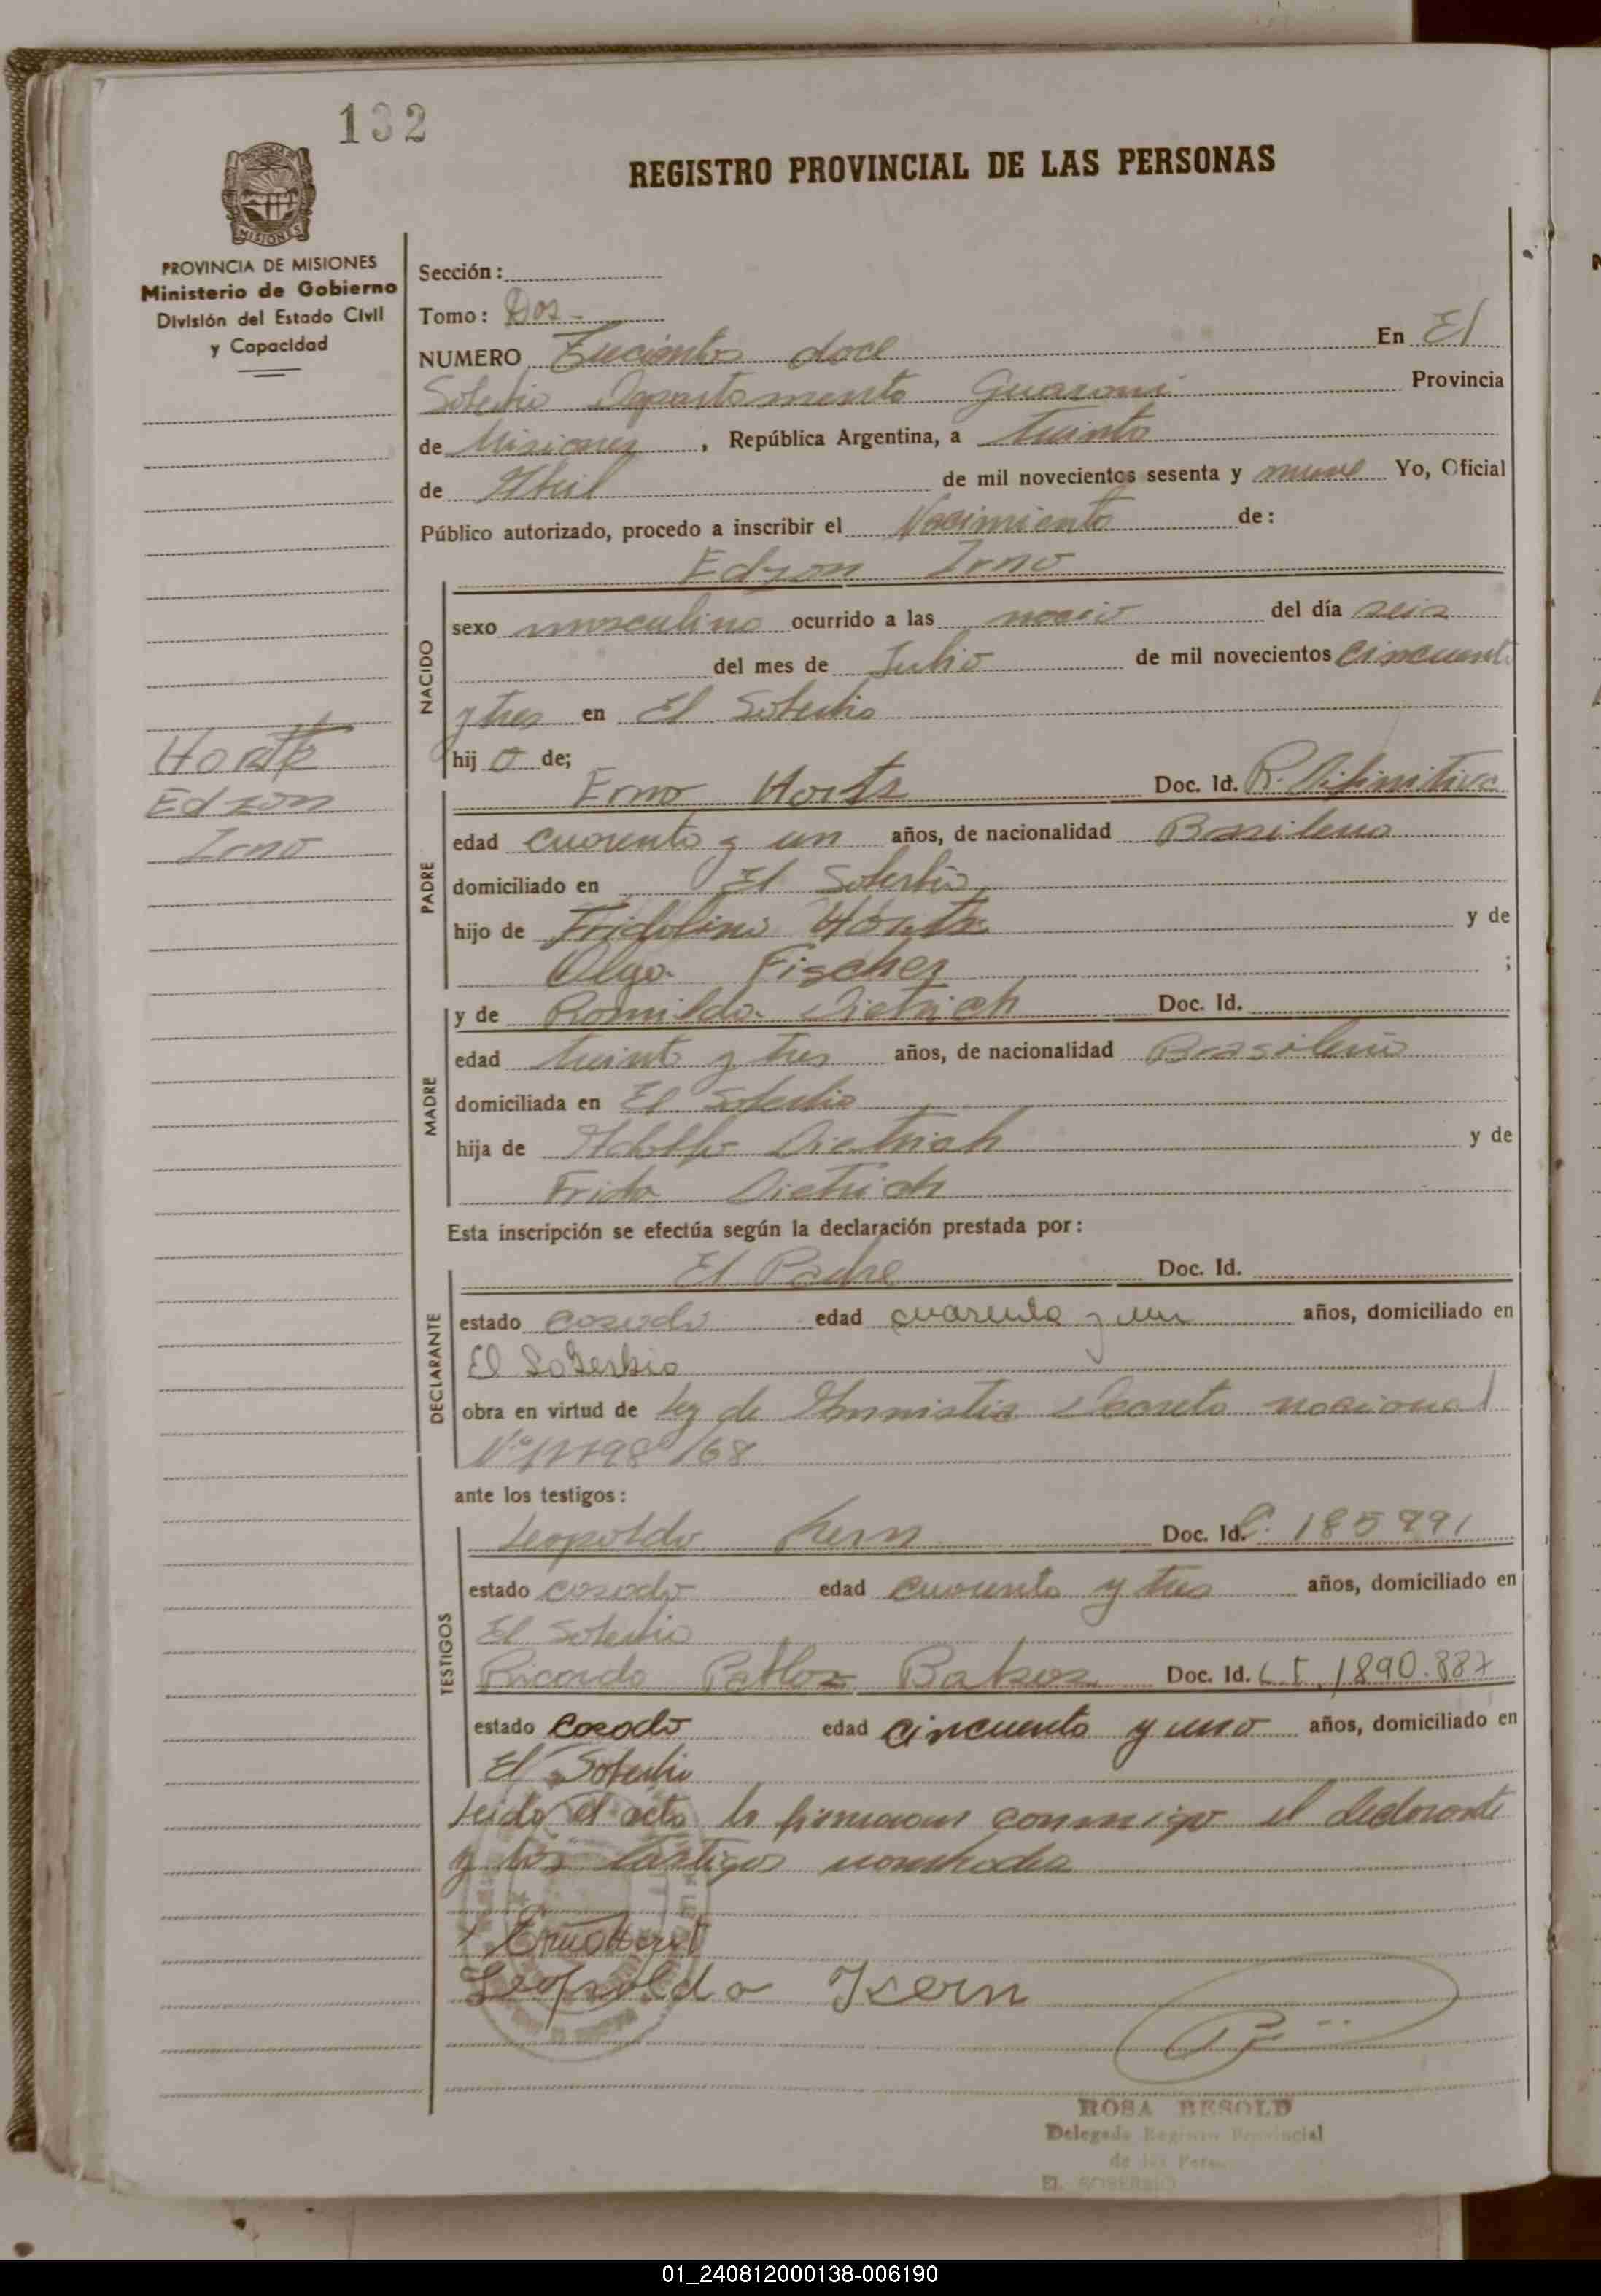 132
REGISTRO PROVINCIAL DE LAS PERSONAS
MISIONES
PROVINCIA DE MISIONES
Ministerio de Gobierno
División del Estado Civil
y Capacidad
Sección:
Tomo: Dos -
NUMERO Trecientos doce En El
Soberbio Departamento Guaraní Provincia
de Misiones, República Argentina, a treinta
de Abril de mil novecientos sesenta y nueve Yo, Oficial
Público autorizado, procedo a inscribir el Nacimiento de:
Edzon Irno
NACIDO
sexo masculino ocurrido a las del día seis
del mes de Julio de mil novecientos cincuenta
y tres en El Soberbio
hijo de;
Edzon
Irno
PADRE
Erno Horts Doc. Id. R. Difinitiva
edad cuarenta y un años, de nacionalidad Brasilera
domiciliado en El Soberbio
hijo de Fridolino Horts y de
Olga Fischer ;
MADRE
y de Romilda Dietrich Doc. Id.
edad treinta y tres años, de nacionalidad Brasilera
domiciliada en El Soberbio
hija de Adolfo Dietrich y de
Frida Dietrich
Esta inscripción se efectúa según la declaración prestada por:
DECLARANTE
El Padre Doc. Id.
estado casado edad cuarenta y un años, domiciliado en
El Soberbio
obra en virtud de Ley de Amnistia Decreto nacional
/68
ante los testigos:
TESTIGOS
Leopoldo Kern Doc. Id. C. 185991
estado casado edad cuarenta y tres años, domiciliado en
El Soberbio
Ricardo Doc. Id. L. E. 1890.887
estado casado edad cincuenta y uno años, domiciliado en
El Soberbio
Leido el acta la firmaron conmigo el declarante
y los testigos nombrados
Leopoldo Kern
ROSA BESOLD
Delegada Registro Provincial
de las
EL SOBERBIO
01_240812000138-006190